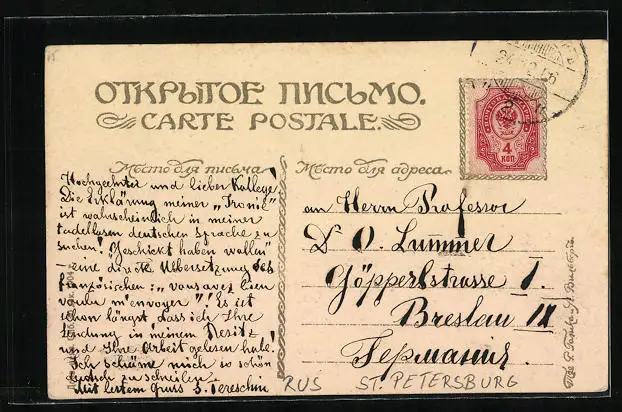 ОТКРЫТОЕ ПИСЬМО.
CARTE POSTALE.
Мѣсто для письма
Мѣсто для адреса
4
КОП
Hochgeehrter und lieber Kollege!
Die Erklärung meiner „Ironie"
ist wahrscheinlich in meiner
tadellosen deutschen Sprache zu
suchen! „Geschickt haben wollen"
– eine direkte Uebersetzung des
französischen: „vous avez bien
voulu m'envoyer"! Es ist
schon längst dass ich Ihre
Sendung in meinem Besitz
und Ihre Arbeit gelesen habe!
Ich schäme mich so schön
zu schreiben
Mit Gruss
an Herrn Professor
Dr O. Lummer
Göppertstrasse 1.
Breslau IX
Германия.
RUS ST. PETERSBURG